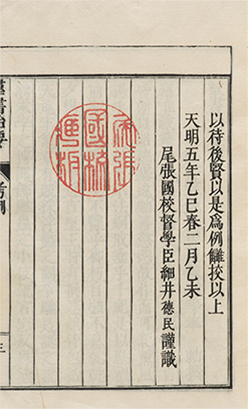 以待後賢以是爲例讎挍以上
天明五年乙巳春二月乙未
尾張國校督學臣細井德民謹識
尾張
國校
羣書治要
考例